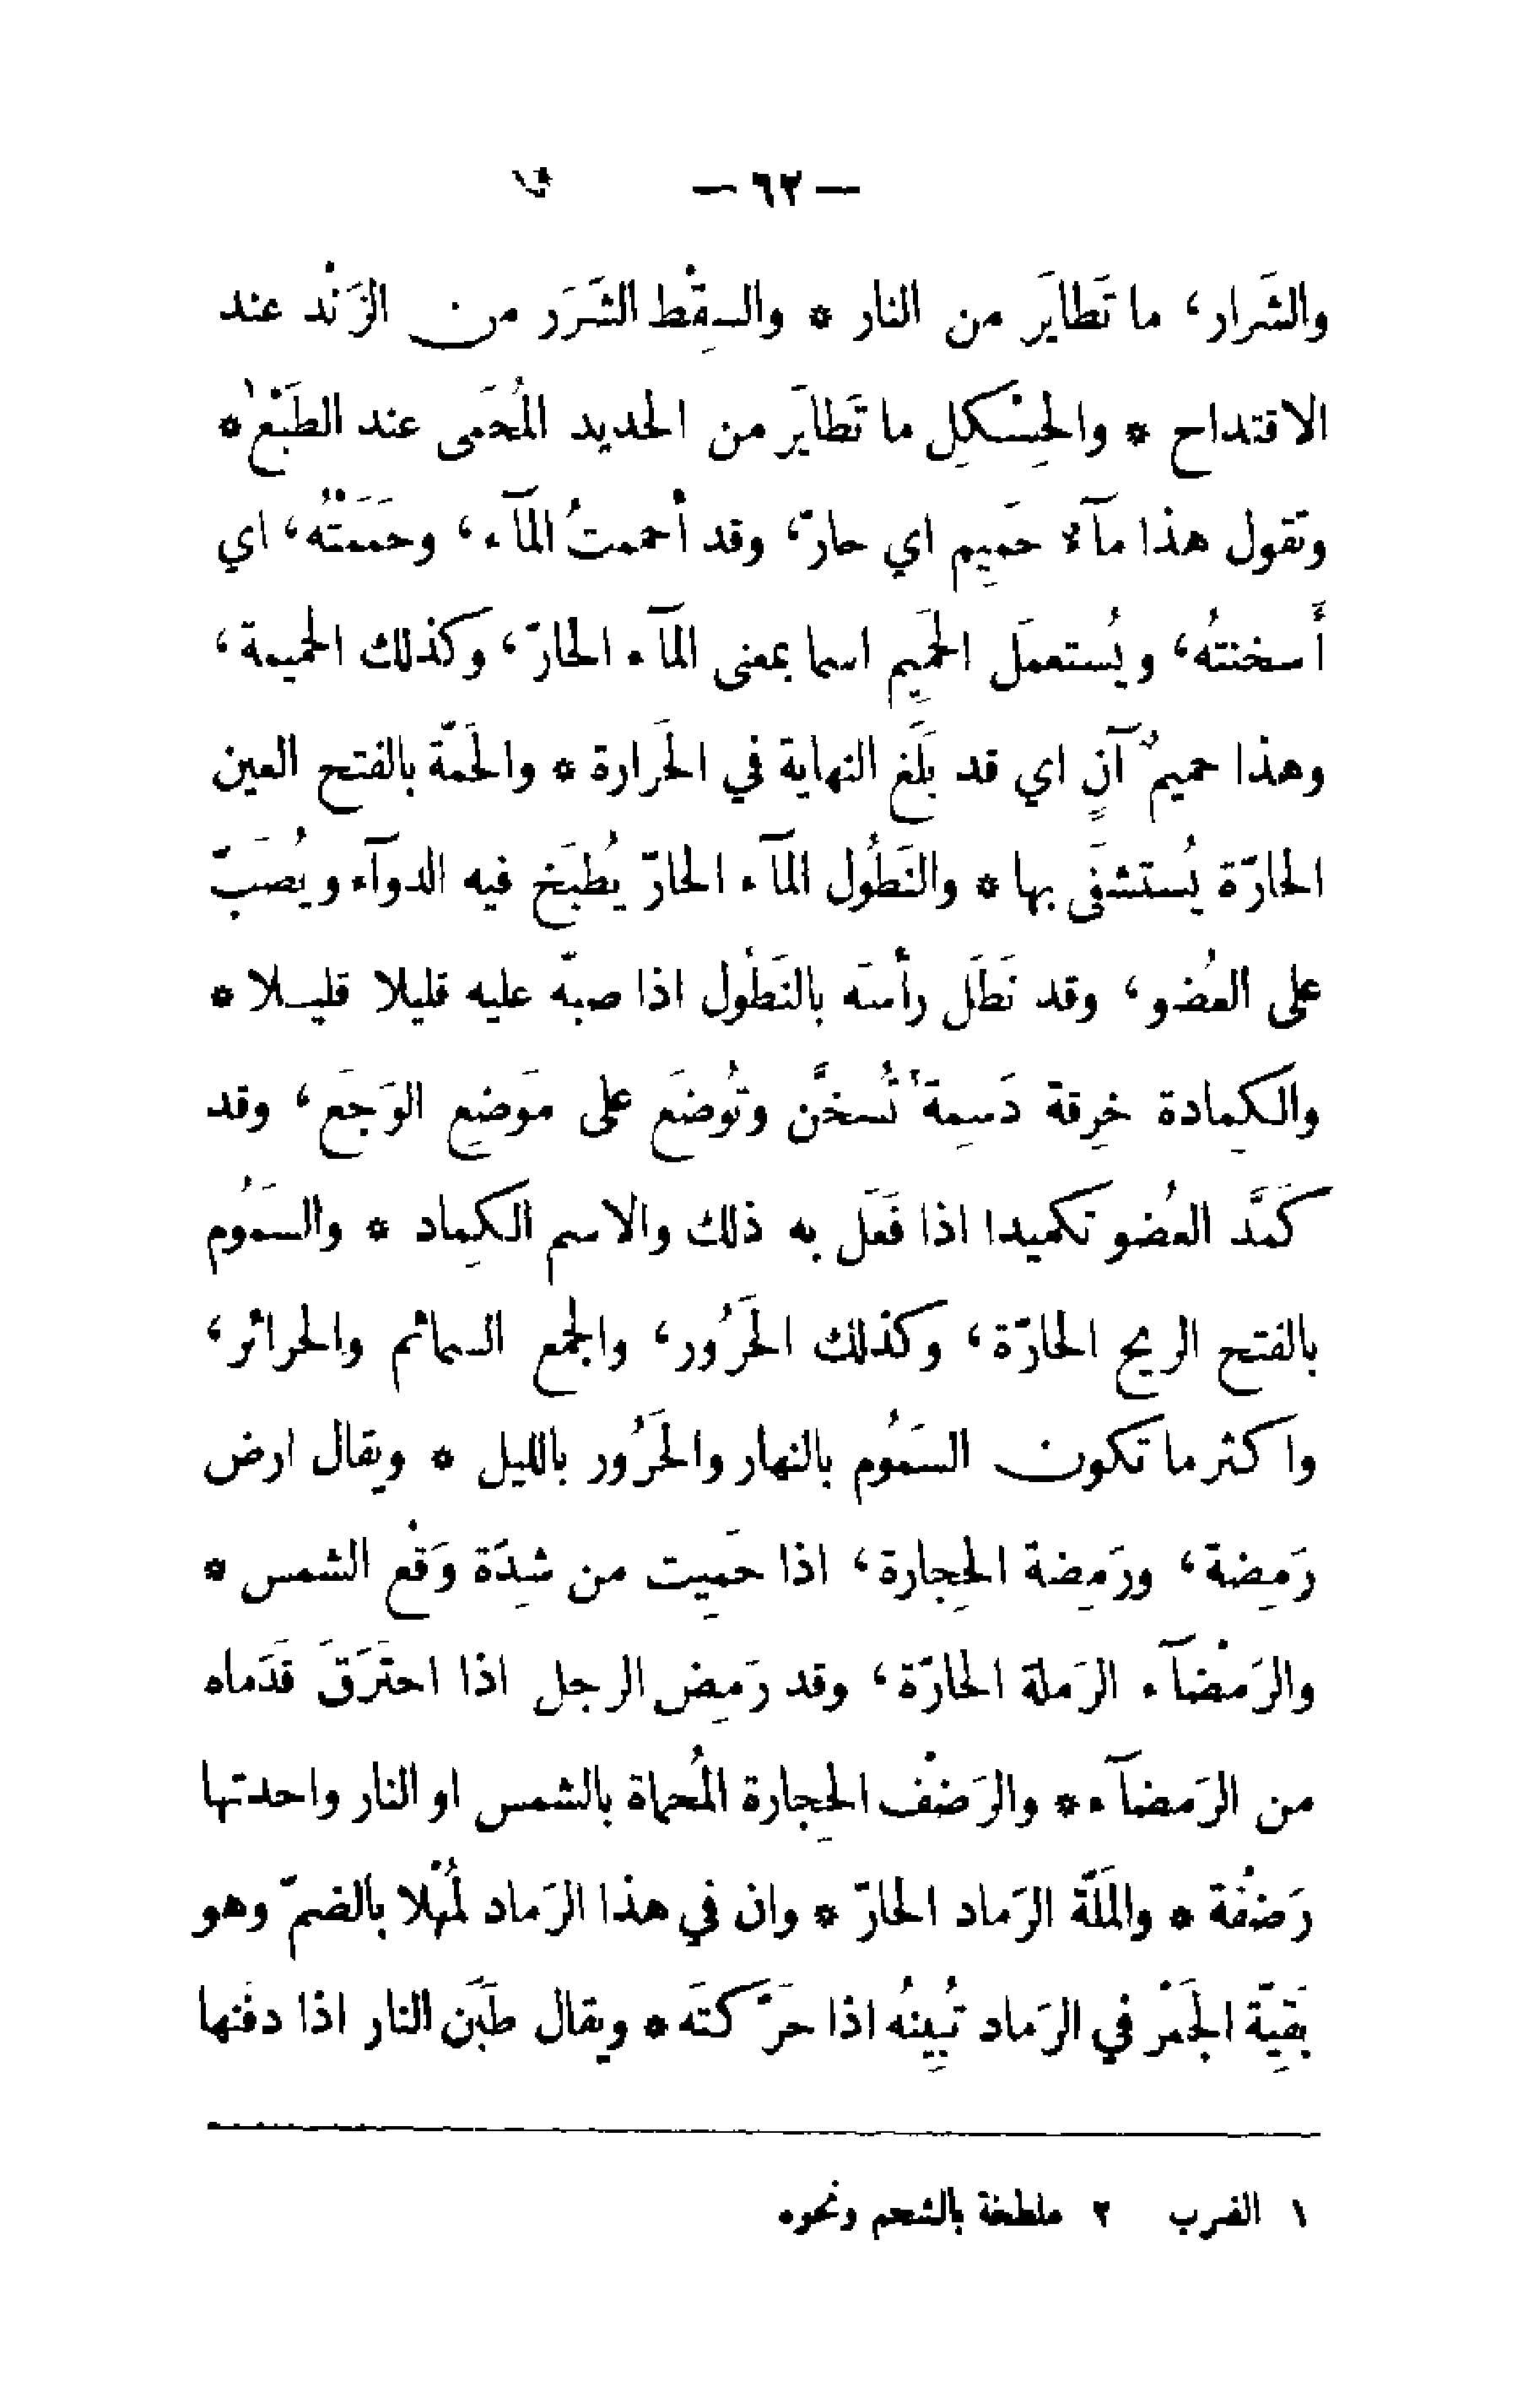 — ٦٢ —
والشَرار، ما تَطايَر من النار * والسِقْط الشَرَر من الزَنْد عند
الاقتداح * والحِسْكِل ما تَطايَر من الحديد المُحَمى عند الطَبْع١ *
وتقول هذا مآء حَمِيم اي حارّ، وقد أُحممتُ المآء، وحَمَمْتُه، اي
أَسخنتُه، ويُستعمَل الحَمِيم اسما بمعنى المآء الحارّ، وكذلك الحميمة،
وهذا حميمٌ آنٍ اي قد بَلَغ النهاية في الحَرارة * والحَمّة بالفتح العين
الحارّة يُستشفَى بها * والنَطُول المآء الحارّ يُطبَخ فيه الدوآء ويُصَبّ
على العُضو، وقد نَطَل رأسَه بالنَطُول اذا صبّه عليه قليلا قليلا *
والكِمادة خِرقة دَسِمة٢ تُسخَّن وتُوضَع على مَوضِع الوَجَع، وقد
كَمَّد العُضو تكميدا اذا فَعَل به ذلك والاسم الكِماد * والسَمُوم
بالفتح الريح الحارّة، وكذلك الحَرُور، والجمع السمائم والحرائر،
واكثر ما تكون السَمُوم بالنهار والحَرُور بالليل * ويقال ارض
رَمِضة، ورَمِضة الحِجارة، اذا حَمِيت من شِدّة وَقْع الشمس *
والرَمْضآء الرَملة الحارّة، وقد رَمِض الرجل اذا احتَرَقَ قَدَماه
من الرَمضآء * والرَضْف الحِجارة المُحماة بالشمس او النار واحدتها
رَضْفة * والمَلّة الرَماد الحارّ * وان في هذا الرَماد لمُهْلا بالضمّ وهو
بَقِيّة الجَمْر في الرَماد تُبِينُه اذا حَرّكتَه * ويقال طَبَن النار اذا دفنها
١ الضرب ٢ ملطخة بالشحم ونحوه